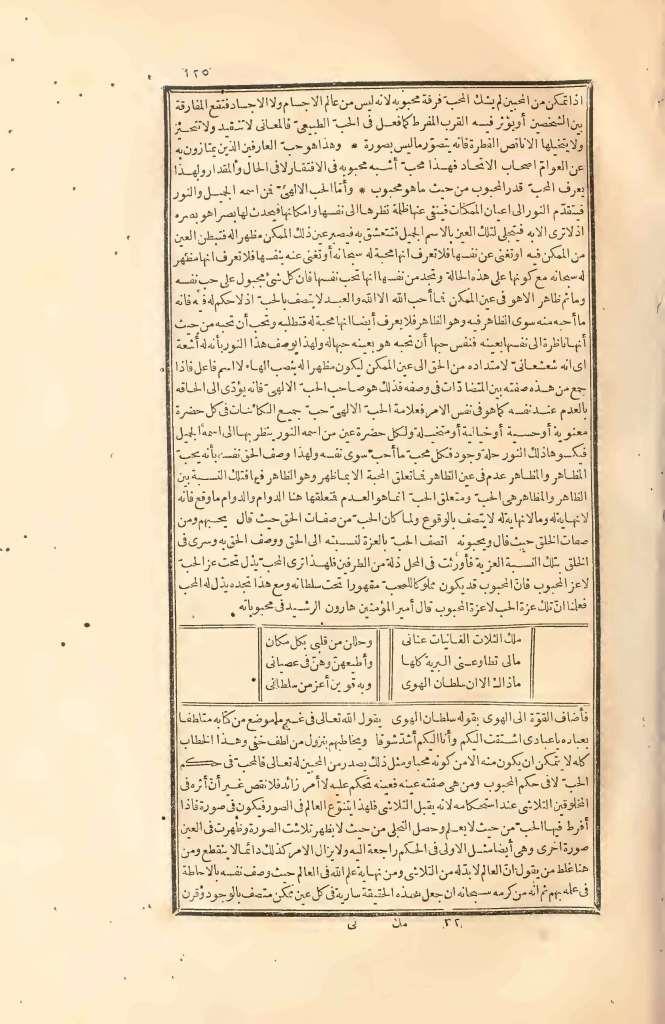 ١٢٥
اذا تمكن من المحبين لم يشك المحب فرقة محبوبه لانه ليس من عالم الاجسام ولا الاجساد فتقع المفارقة
بين الشخصين أو يؤثر فيه القرب المفرط كما فعل فى الحب الطبيعى فالمعانى لا تتقيد ولا تتحيز
ولا يتخيلها الا ناقص الفطرة فانه يتصور ما ليس بصورة * وهذا هو حب العارفين الذين يمتازون به
عن العوام أصحاب الاتحاد فهذا محب أشبه محبوبه فى الافتقار لا فى الحال والمقدار ولهذا
يعرف المحب قدر المحبوب من حيث ما هو محبوب * وأما الحب الالهى فمن اسمه الجميل والنور
فيتقدم النور الى اعيان الممكنات فينفى عنها ظلمة نظرها الى نفسها وامكانها فيحدث لها بصرا هو بصره
اذ لا ترى الا به فيتجلى لتلك العين بالاسم الجميل فتتعشق به فيصير عين ذلك الممكن مظهرا له فتبطن العين
من الممكن فيه أو تفنى عن نفسها فلا تعرف انها محبة له سبحانه أو تفنى عنه بنفسها فلا تعرف انها مظهر
له سبحانه مع كونها على هذه الحالة وتجد من نفسها انها تحب نفسها فان كل شئ مجبول على حب نفسه
وما ثم ظاهر الا هو فى عين الممكن فما أحب الله الا الله والعبد لا يتصف بالحب اذ لا حكم له فيه فانه
ما أحبه منه سوى الظاهر فيه وهو الظاهر فلا يعرف أيضا انها محبة له فتطلبه وتحب أن تحبه من حيث
أنها ناظرة الى نفسها بعينه فنفس حبها أن تحبه هو بعينه حبها له ولهذا يوصف هذا النور بأنه له أشعة
اى انه شعشعانى لامتداده من الحق الى عين الممكن ليكون مظهرا له بنصب الهاء لا اسم فاعل فاذا
جمع من هذه صفته بين المتضادات فى وصفه فذلك هو صاحب الحب الالهى فانه يؤدى الى الحاقه
بالعدم عند نفسه كما هو فى نفس الامر فعلامة الحب الالهى حب جميع الكائنات فى كل حضرة
معنوية أو حسية أو خيالية أو متخيلة ولكل حضرة عين من اسمه النور ينظر بها الى اسمه الجميل
فيكسوها ذلك النور حلة وجود فكل محب ما أحب سوى نفسه ولهذا وصف الحق نفسه بأنه يحب
المظاهر والمظاهر عدم فى عين الظاهر فما تعلق المحبة الا بما ظهر وهو الظاهر فيها فتلك النسبة بين
الظاهر والمظاهر هى الحب ومتعلق الحب انما هو العدم فمتعلقها هنا الدوام والدوام ما وقع فانه
لا نهاية له وما لا نهاية له لا يتصف بالوقوع ولما كان الحب من صفات الحق حيث قال يحبهم ومن
صفات الخلق حيث قال ويحبونه اتصف الحب بالعزة لنسبته الى الحق ووصف الحق به وسرى فى
الخلق بتلك النسبة العزية فأورثت فى المحل ذلة من الطرفين فلهذا ترى المحب يذل تحت عز الحب
لا عز المحبوب فان المحبوب قد يكون مملوكا للمحب مقهورا تحت سلطانه ومع هذا تجده يذل له المحب
فعلمنا ان تلك عزة الحب لا عزة المحبوب قال أمير المؤمنين هارون الرشيد فى محبوباته
ملك الثلاث الغانيات عنانى وحللن من قلبى بكل مكان
مالى تطاوعنى البرية كلها وأطيعهن وهن فى عصيانى
ما ذاك الا ان سلطان الهوى وبه قوين أعز من سلطانى
فأضاف القوة الى الهوى بقوله سلطان الهوى يقول الله تعالى فى غير ما موضع من كتابه متلطفا
بعباده يا عبادى اشتقت اليكم وأنا اليكم أشد شوقا ويخاطبهم بنزول من لطف خفى وهذا الخطاب
كله لا يتمكن ان يكون منه الا من كونه محبا ومثل ذلك يصدر من المحبين له تعالى فالمحب فى حكم
الحب لا فى حكم المحبوب ومن هى صفته عينه فعينه تحكم عليه لا أمر زائد فلا نقص غير أن أثره فى
المخلوقين التلاشى عند استحكامه لانه يقبل التلاشى فلهذا يتنوع العالم فى الصور فيكون فى صورة فاذا
أفرط فيها الحب من حيث لا يعلم وحصل التجلى من حيث لا يظهر تلاشت الصورة وظهرت فى العين
صورة أخرى وهى أيضا مثل الاولى فى الحكم راجعة اليه ولا يزال الامر كذلك دائما لا ينقطع ومن
هنا غلط من يقول ان العالم لا بد له من التلاشى ومن نهاية علم الله فى العالم حيث وصف نفسه بالاحاطة
فى علمه بهم ثم انه من كرمه سبحانه ان جعل هذه الحقيقة سارية فى كل عين ممكن متصف بالوجود وقرن
٤٢ مك نى